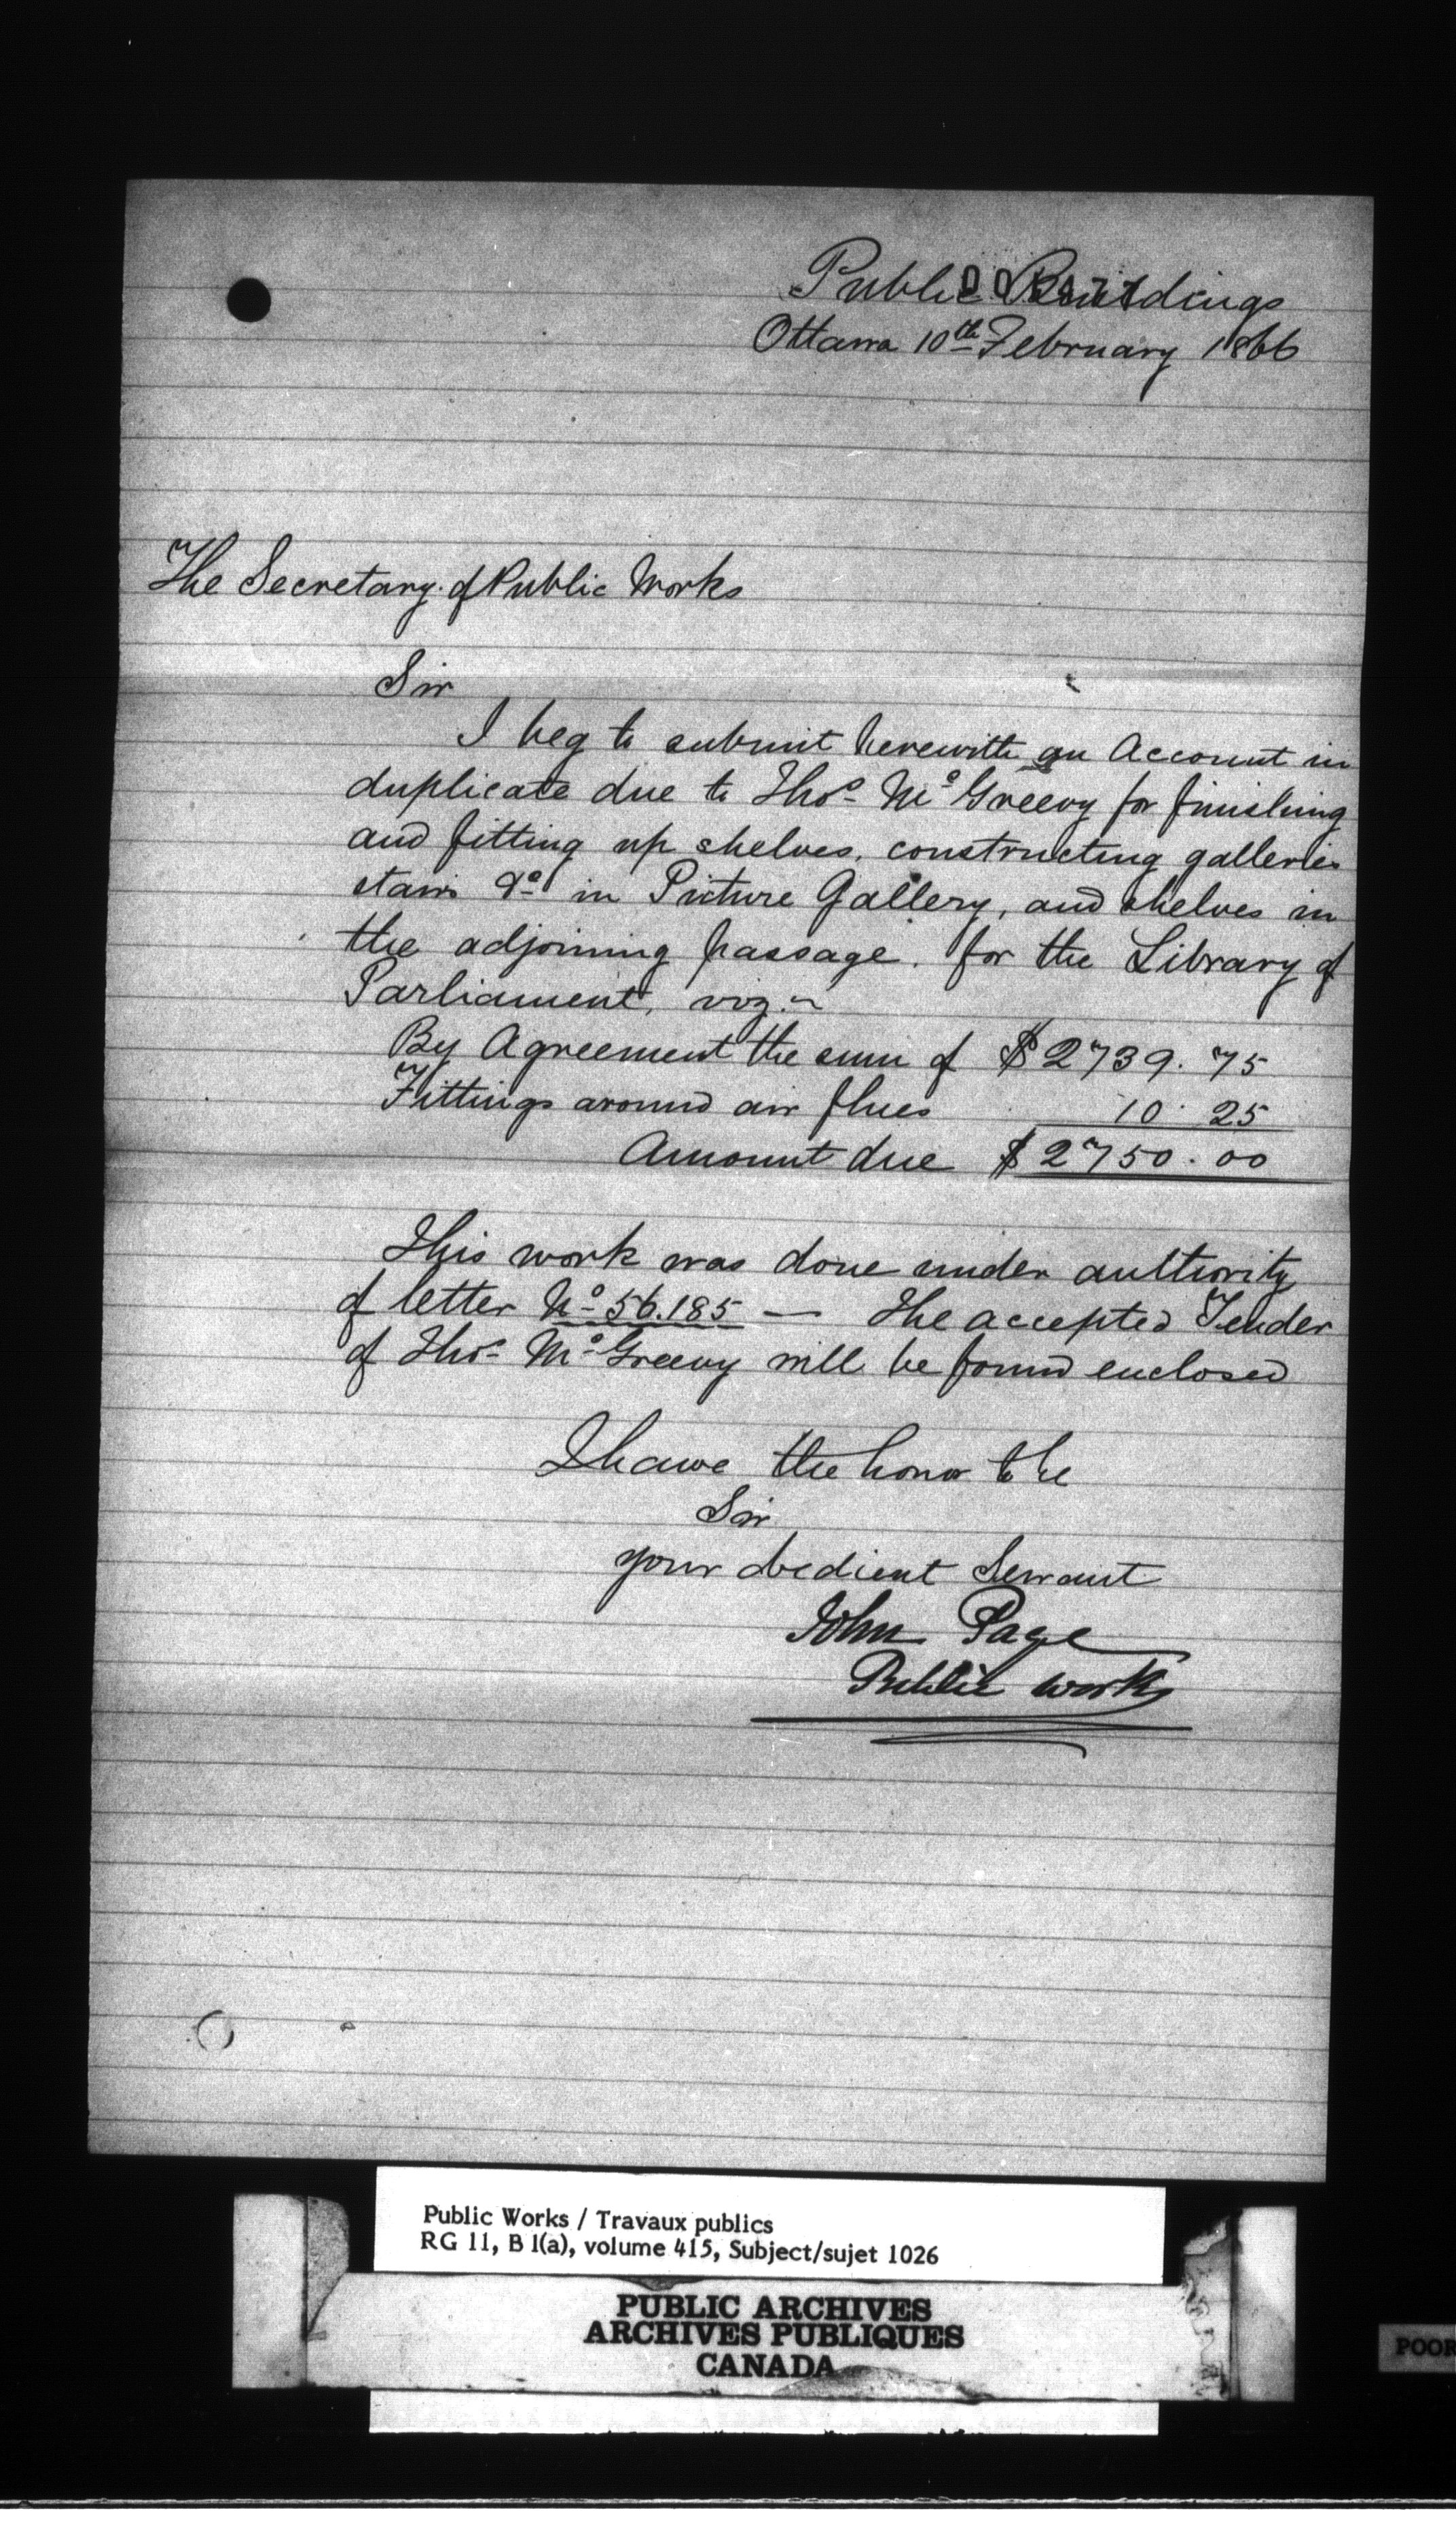 Public Buildings
Ottawa 10th February 1866
The Secretary of Public Works
Sir
I beg to submit herewith an Account in
duplicate due to Thos. McGreevy for finishing
and fitting up shelves, constructing galleries
stairs &c in Picture Gallery, and shelves in
the adjoining passage. for the Library of
Parliament, viz. ~
By Agreement the sum of $2739. 75
Fittings around air flues 10. 25
Amount due $2750. 00
This work was done under authority
of letter No 56.185 — The accepted Tender
of Thos. McGreevy will be found enclosed
I have the honor to be
Sir
your obedient Servant
John Page
Public Works
Public Works / Travaux publics
RG 11, B 1(a), volume 415, Subject/sujet 1026
PUBLIC ARCHIVES
ARCHIVES PUBLIQUES
CANADA
POOR